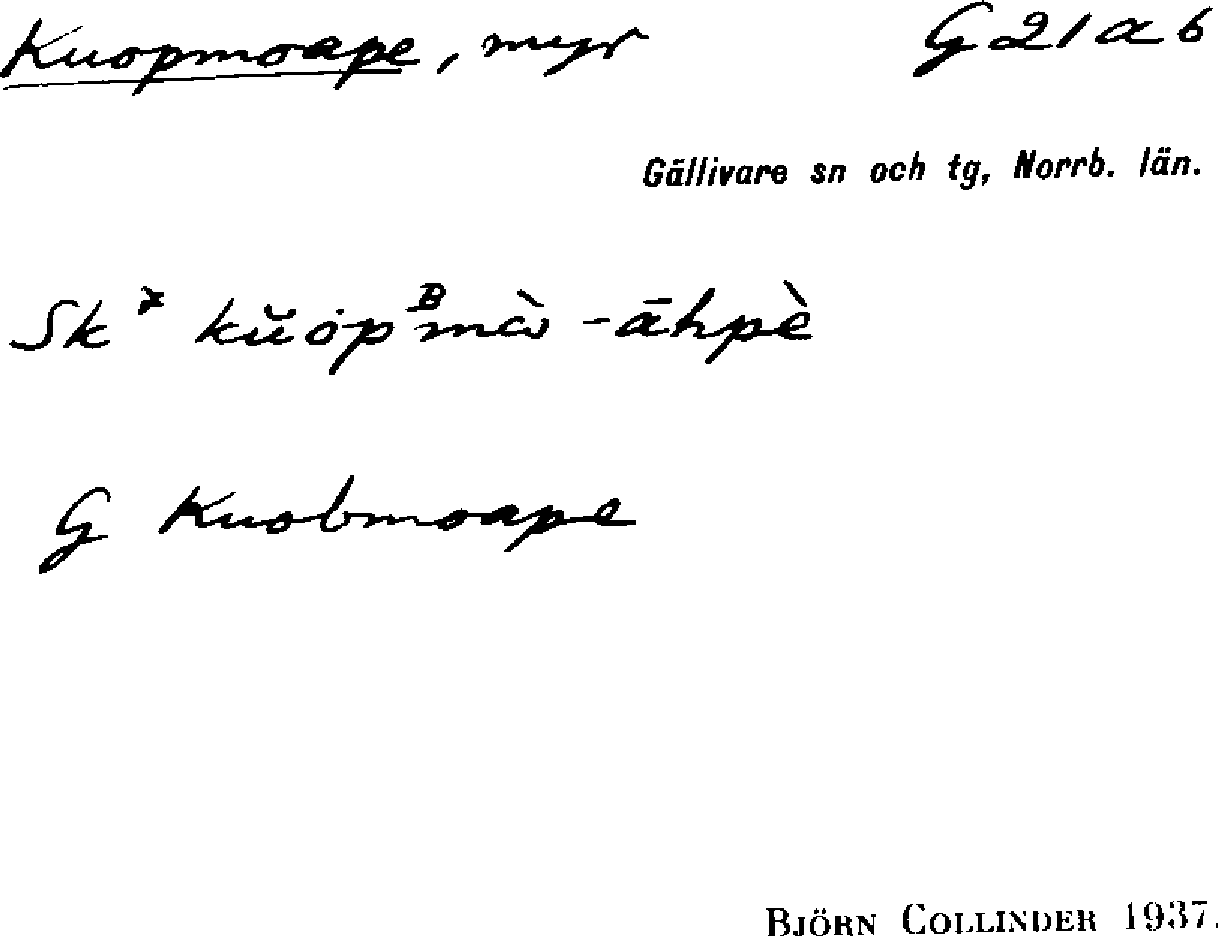 Kuopmoape, myr G 21 a b
Gällivare sn och tg, Norrb. län.
Sk⁷ kŭȯpᴮmὼ -āhpè
G Kuobmoape
BJÖRN COLLINDER 1937.